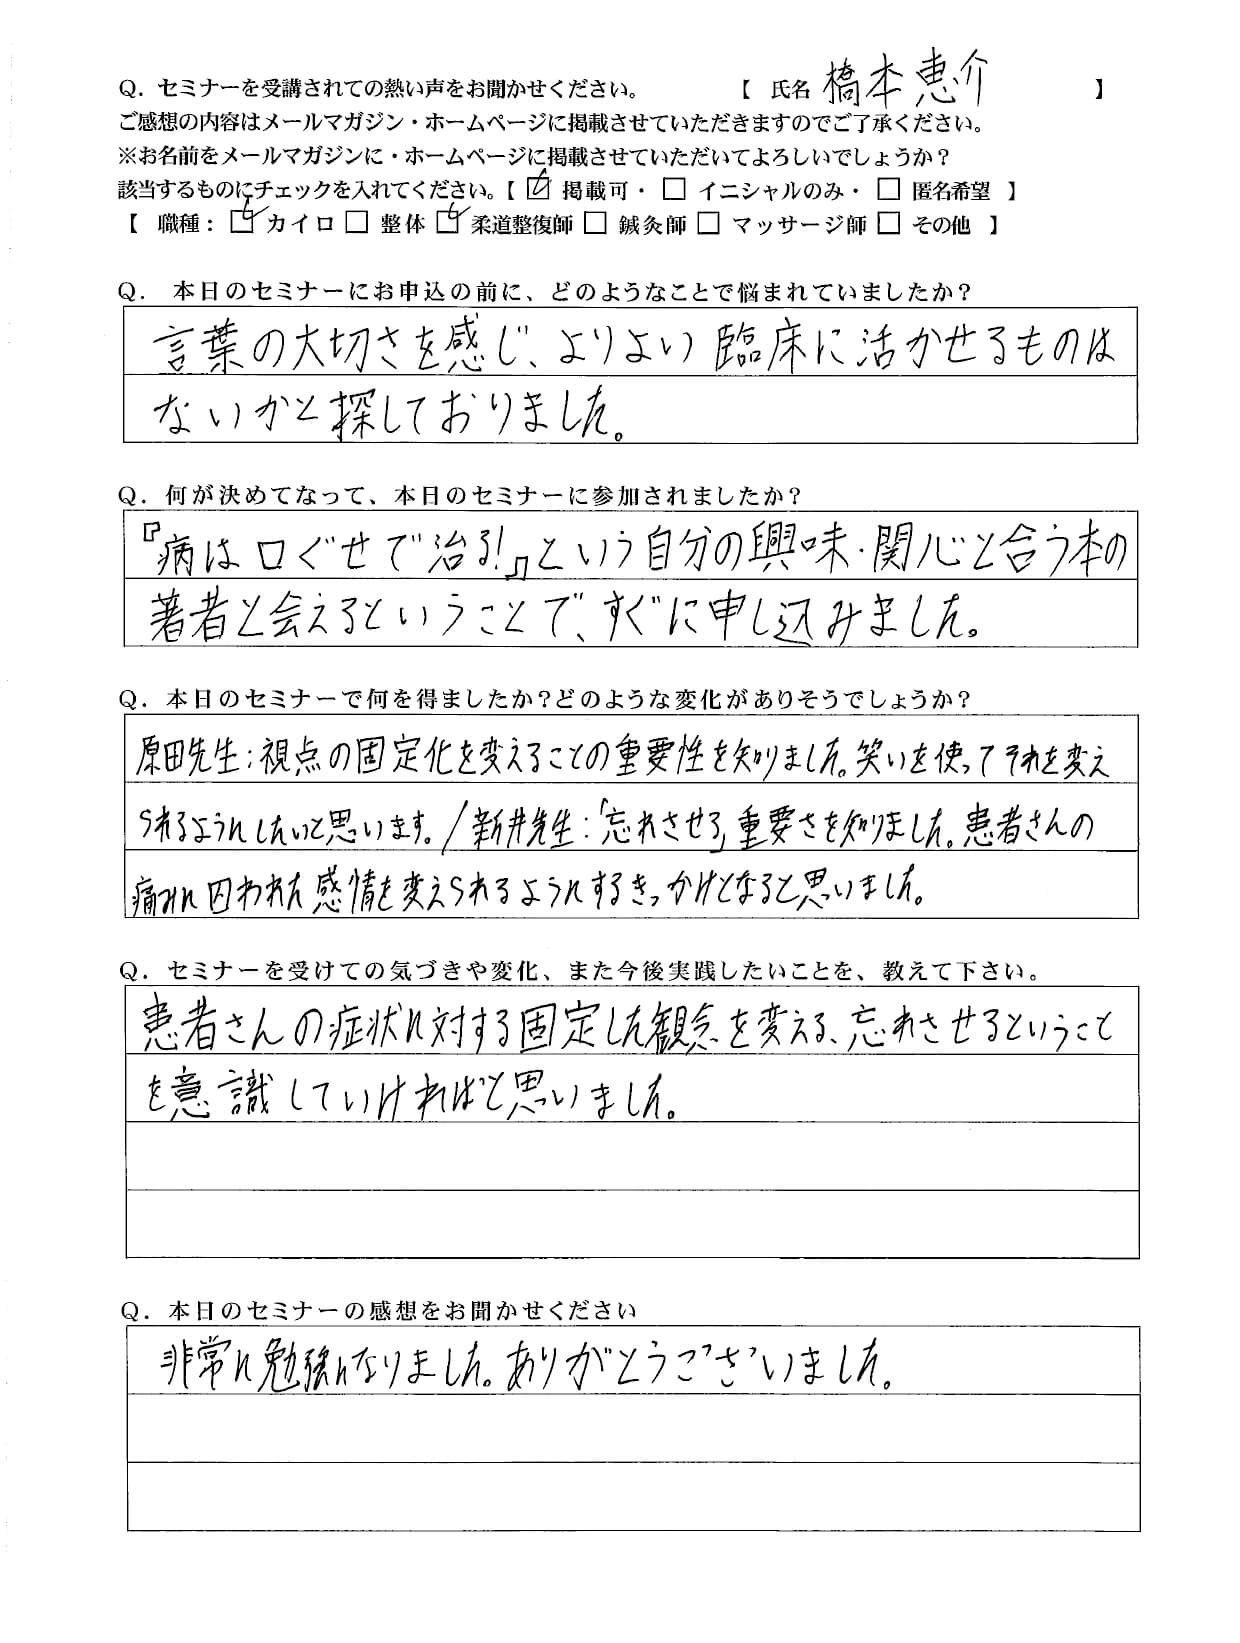 Q．セミナーを受講されての熱い声をお聞かせください。　【 氏名 橋本恵介 】
ご感想の内容はメールマガジン・ホームページに掲載させていただきますのでご了承ください。
※お名前をメールマガジンに・ホームページに掲載させていただいてよろしいでしょうか？
該当するものにチェックを入れてください。【 ☑ 掲載可・ □ イニシャルのみ・ □ 匿名希望 】
【 職種： ☑ カイロ □ 整体 ☑ 柔道整復師 □ 鍼灸師 □ マッサージ師 □ その他 】
Q． 本日のセミナーにお申込の前に、どのようなことで悩まれていましたか？
言葉の大切さを感じ、よりよい臨床に活かせるものは
ないかと探しておりました。
Q．何が決めてなって、本日のセミナーに参加されましたか？
『病は口ぐせで治る!』という自分の興味・関心と合う本の
著者と会えるということで、すぐに申し込みました。
Q．本日のセミナーで何を得ましたか？どのような変化がありそうでしょうか？
原田先生：視点の固定化を変えることの重要性を知りました。笑いを使ってそれを変え
られるようにしたいと思います。/新井先生：「忘れさせる」重要さを知りました。患者さんの
痛みに囚われた感情を変えられるようにするきっかけとなると思いました。
Q．セミナーを受けての気づきや変化、また今後実践したいことを、教えて下さい。
患者さんの症状に対する固定した観念を変える、忘れさせるということ
を意識していければと思いました。
Q．本日のセミナーの感想をお聞かせください
非常に勉強になりました。ありがとうございました。